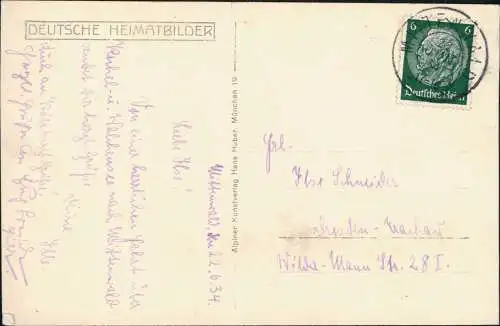 DEUTSCHE HEIMATBILDER
Mittenwald, den
22.6.34.
Liebe Ilse!
Von einer herrlichen Fahrt über
Kochel- u. Walchensee nach Mittenwald
sendet Dir herzl. Grüße
Deine
Elli
Alpiner Kunstverlag Hans Huber, München 19
6 6
Deutsches Reich
Frl.
Ilse Schneider
Dresden-Trachau
Wilder-Mann Str. 28 I.